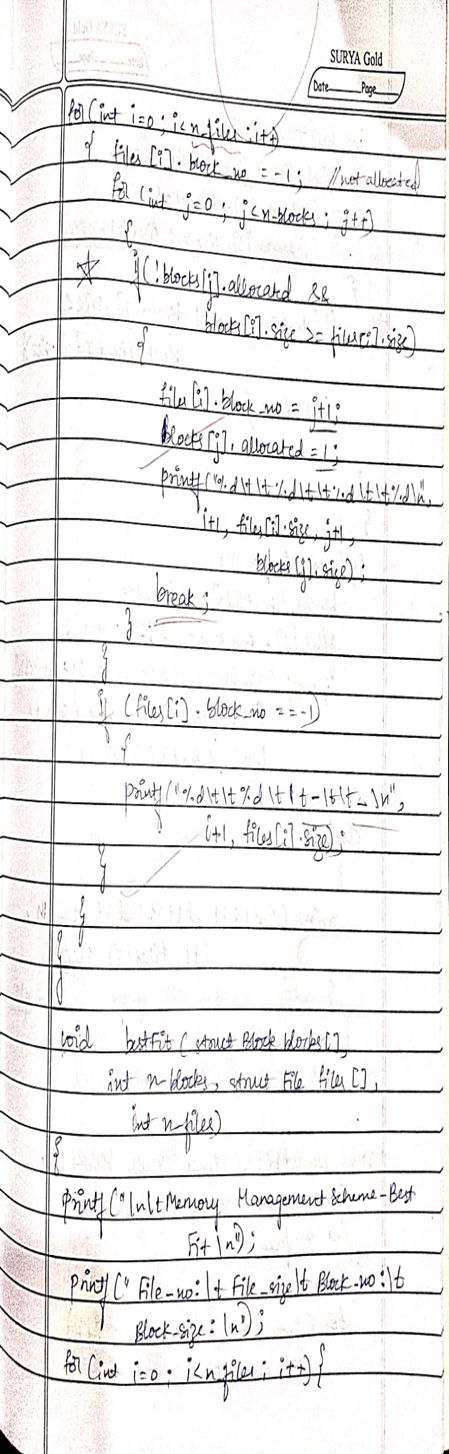 SURYA Gold
Date Page
for (int i=0 ; i<n_files ; i++)
{ files [i] . block_no = -1 ; //not allocated
for (int j=0 ; j<n-blocks ; j++)
{
☆ if (!blocks[j].allocated &&
blocks[j].size >= files[i].size)
{
files [i] . block_no = j+1;
blocks [j] . allocated = 1 ;
printf ("%d\t\t%d\t\t%d\t\t%d\n",
i+1, files[i].size, j+1,
blocks [j]. size) ;
break ;
}
}
if (files[i] . block_no == -1)
{
printf ("%d\t\t%d\t\t-\t\t-\n",
i+1, files[i].size);
}
}
}
void bestFit ( struct Block blocks[],
int n-blocks, struct File files [],
int n-files)
{
printf ("\n\tMemory Management Scheme-Best
Fit \n") ;
printf (" File-no:\t File_size\t Block-no:\t
Block-size: \n") ;
for (int i=0 ; i<n_files ; i++) {